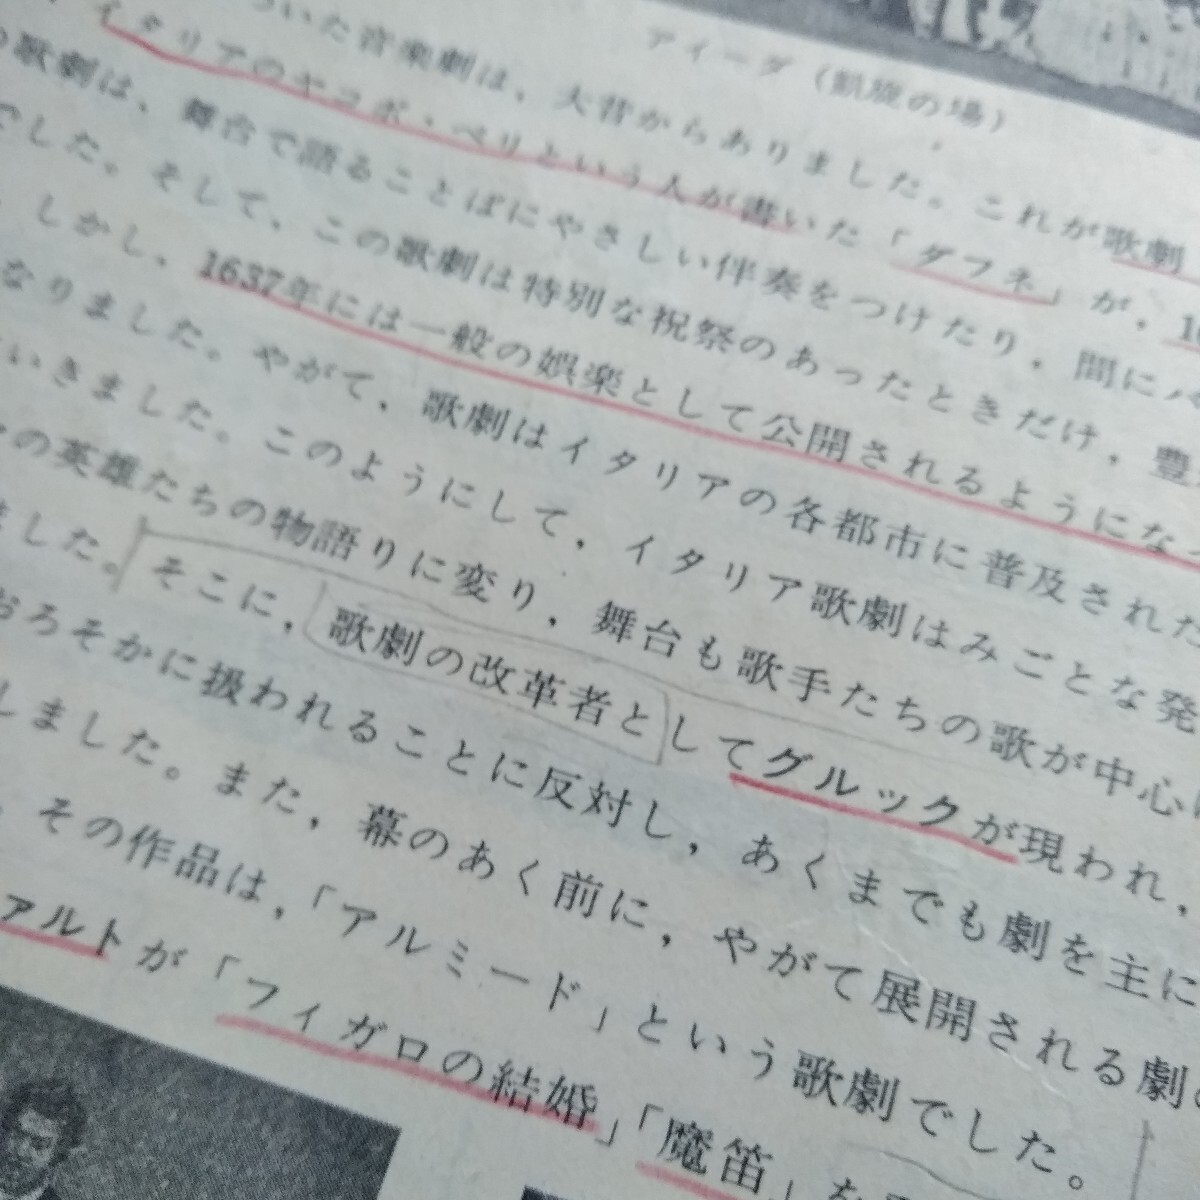 アイーダ(凱旋の場)
ついた音楽劇は、大昔からありました。これが歌劇
イタリアのヤコポ・ペリという人が書いた「ダフネ」が、
歌劇は、舞台で語ることばにやさしい伴奏をつけたり、間に
でした。そして、この歌劇は特別な祝祭のあったときだけ,豊
しかし、1637年には一般の娯楽として公開されるようにな
なりました。やがて、歌劇はイタリアの各都市に普及された
いきました。このようにして、イタリア歌劇はみごとな発
の英雄たちの物語りに変り,舞台も歌手たちの歌が中心に
ました。そこに,歌劇の改革者としてグルックが現われ,
おろそかに扱われることに反対し,あくまでも劇を主に
しました。また,幕のあく前に,やがて展開される劇の
その作品は,「アルミード」という歌劇でした。
ァルトが「フィガロの結婚」「魔笛」を